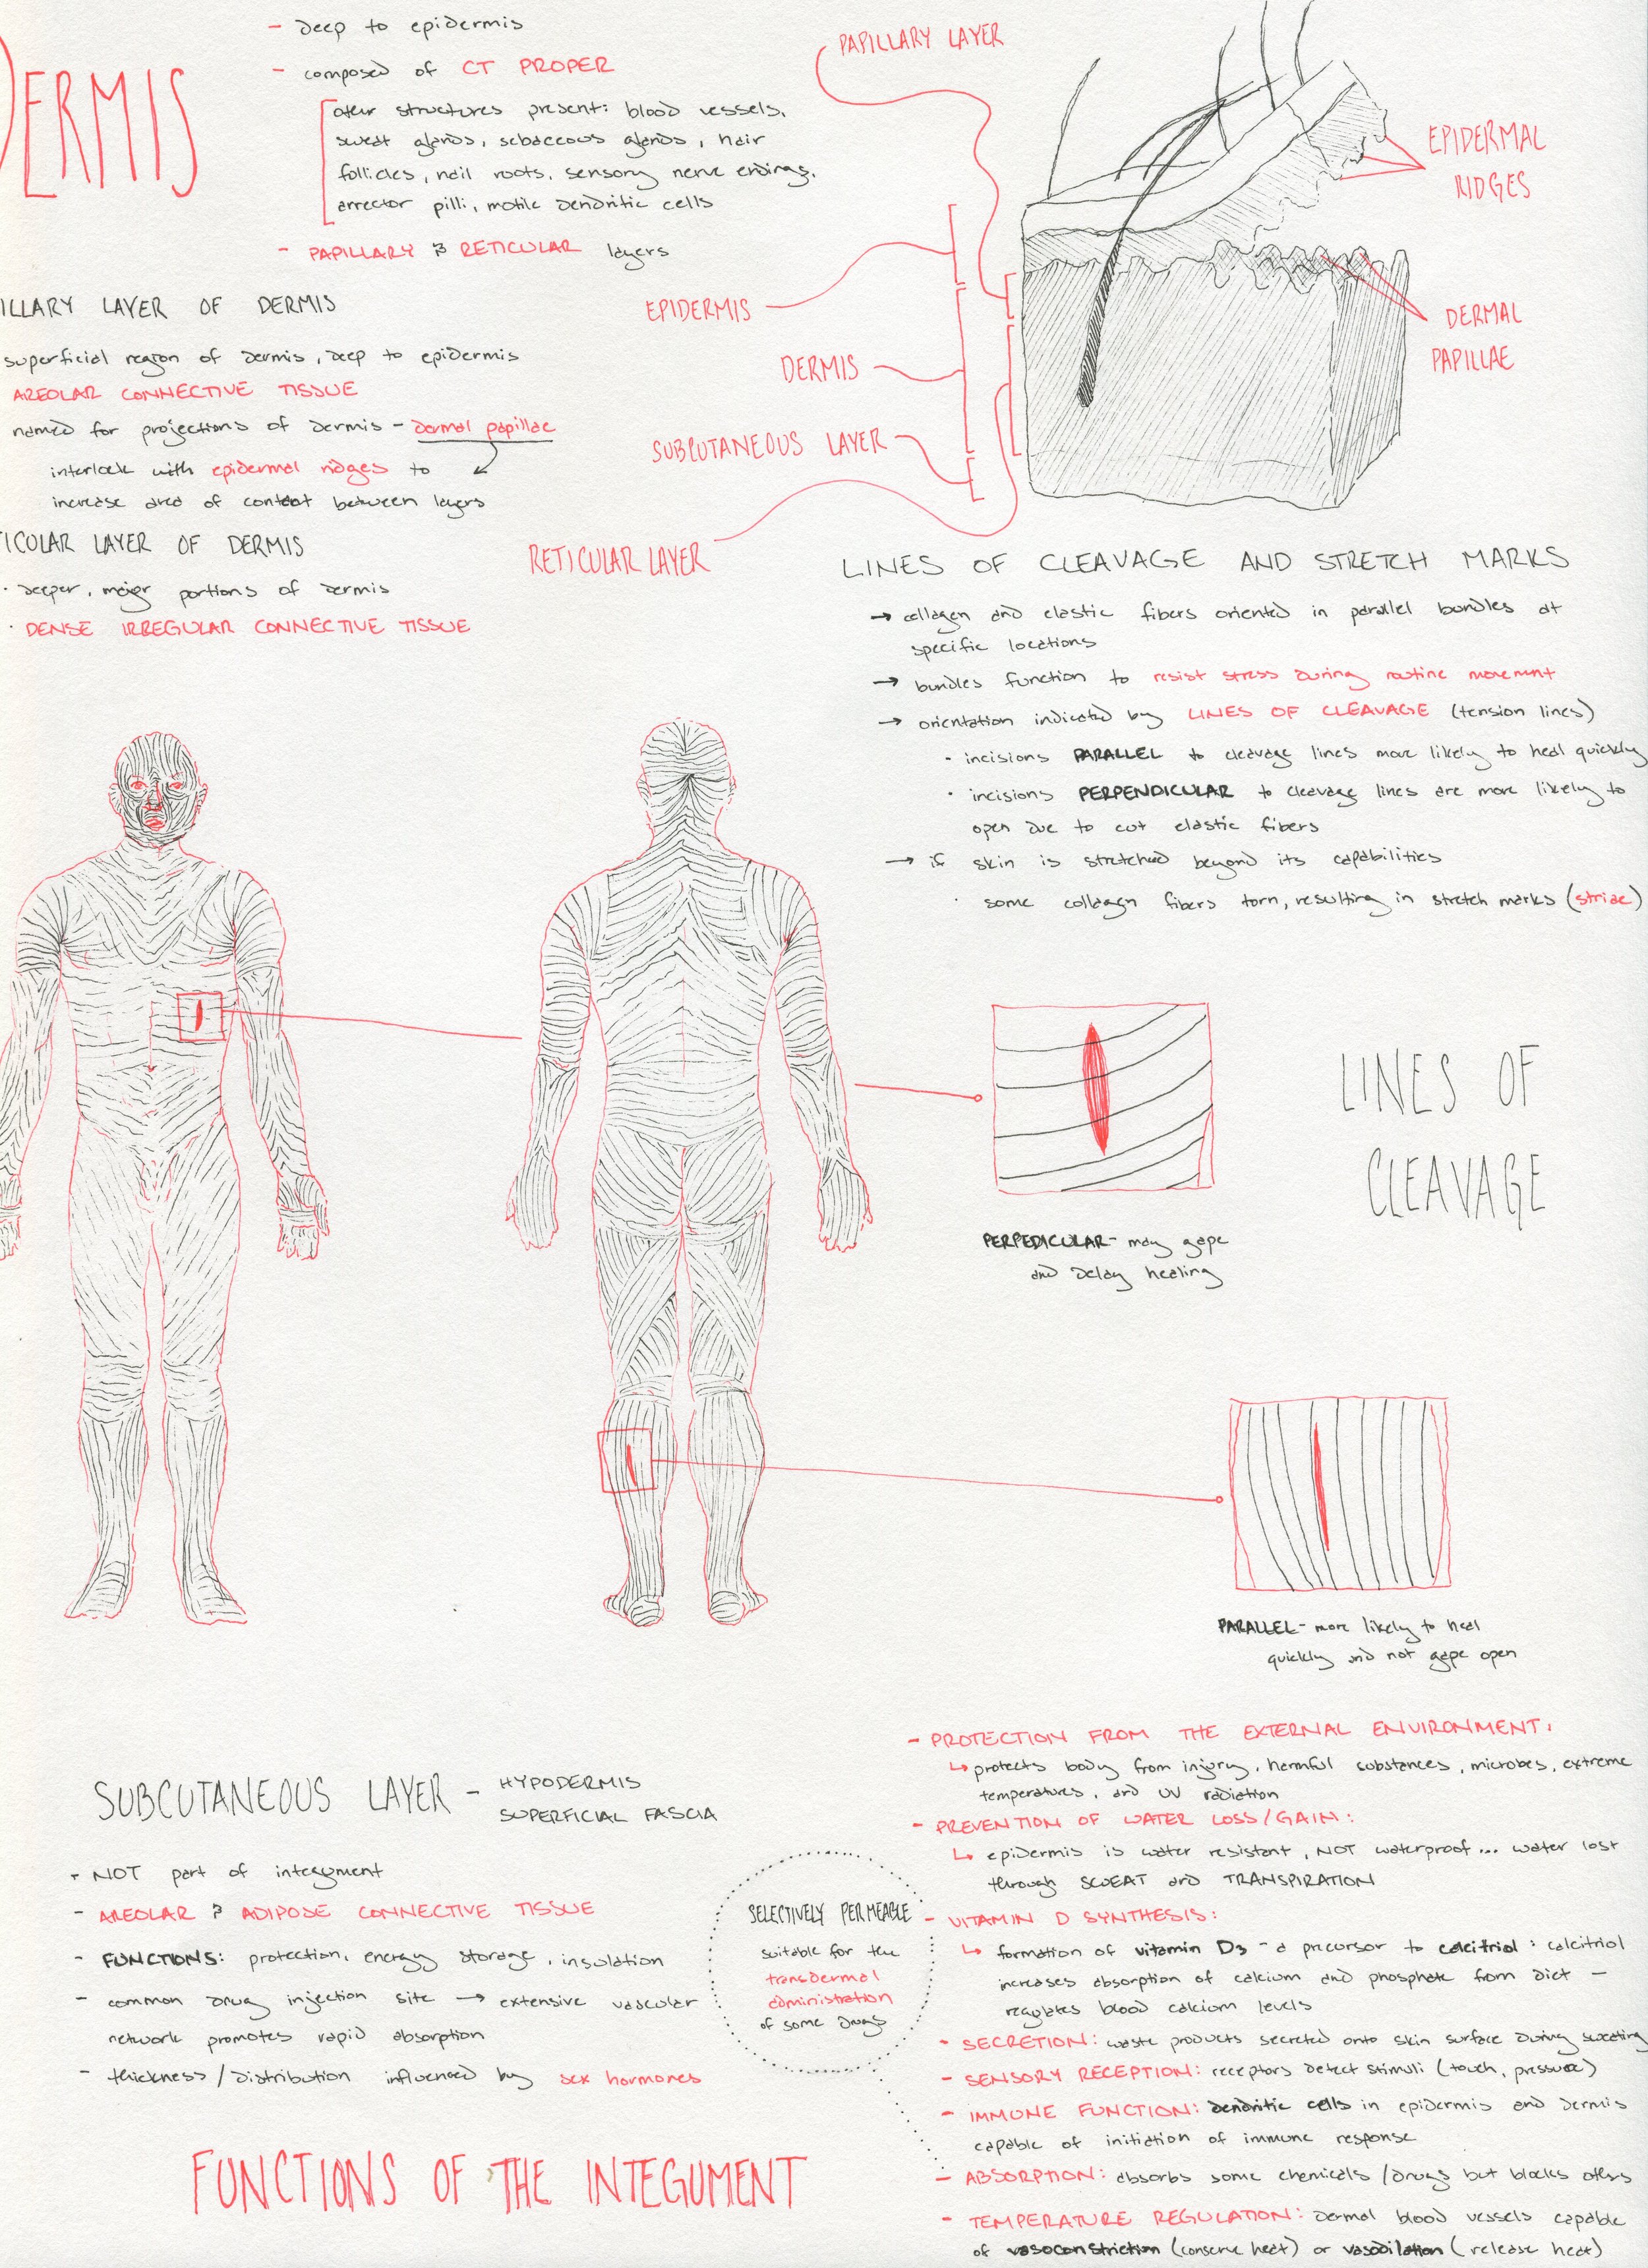 DERMIS
- deep to epidermis
- composed of CT PROPER
other structures present: blood vessels,
sweat glands, sebaceous glands, hair
follicles, nail roots, sensory nerve endings,
arrector pilli, motile dendritic cells
- PAPILLARY & RETICULAR layers
ILLARY LAYER OF DERMIS
superficial region of dermis, deep to epidermis
AREOLAR CONNECTIVE TISSUE
named for projections of dermis - dermal papillae
interlock with epidermal ridges to
increase area of contact between layers
TICULAR LAYER OF DERMIS
· deeper, major portions of dermis
· DENSE IRREGULAR CONNECTIVE TISSUE
PAPILLARY LAYER
EPIDERMAL
RIDGES
EPIDERMIS
DERMAL
PAPILLAE
DERMIS
SUBCUTANEOUS LAYER
RETICULAR LAYER
LINES OF CLEAVAGE AND STRETCH MARKS
→ collagen and elastic fibers oriented in parallel bundles at
specific locations
→ bundles function to resist stress during routine movement
→ orientation indicated by LINES OF CLEAVAGE (tension lines)
· incisions PARALLEL to cleavage lines more likely to heal quickly
· incisions PERPENDICULAR to cleavage lines are more likely to
open due to cut elastic fibers
→ if skin is stretched beyond its capabilities
· some collagen fibers torn, resulting in stretch marks (striae)
LINES OF
CLEAVAGE
PERPEDICULAR- may gape
and delay healing
PARALLEL- more likely to heal
quickly and not gape open
SUBCUTANEOUS LAYER - HYPODERMIS
SUPERFICIAL FASCIA
- NOT part of integument
- AREOLAR & ADIPOSE CONNECTIVE TISSUE
- FUNCTIONS: protection, energy storage, insulation
- common drug injection site → extensive vascular
network promotes rapid absorption
- thickness/distribution influenced by sex hormones
SELECTIVELY PERMEABLE
suitable for the
transdermal
administration
of some drugs
FUNCTIONS OF THE INTEGUMENT
- PROTECTION FROM THE EXTERNAL ENVIRONMENT:
↳ protects body from injury, harmful substances, microbes, extreme
temperatures, and UV radiation
- PREVENTION OF WATER LOSS/GAIN:
↳ epidermis is water resistant, NOT waterproof... water lost
through SWEAT and TRANSPIRATION
- VITAMIN D SYNTHESIS:
↳ formation of vitamin D3 - a precursor to calcitriol: calcitriol
increases absorption of calcium and phosphate from diet -
regulates blood calcium levels
- SECRETION: waste products secreted onto skin surface during sweating
- SENSORY RECEPTION: receptors detect stimuli (touch, pressure)
- IMMUNE FUNCTION: dendritic cells in epidermis and dermis
capable of initiation of immune response
- ABSORPTION: absorbs some chemicals/drugs but blocks others
- TEMPERATURE REGULATION: dermal blood vessels capable
of vasoconstriction (conserve heat) or vasodilation (release heat)